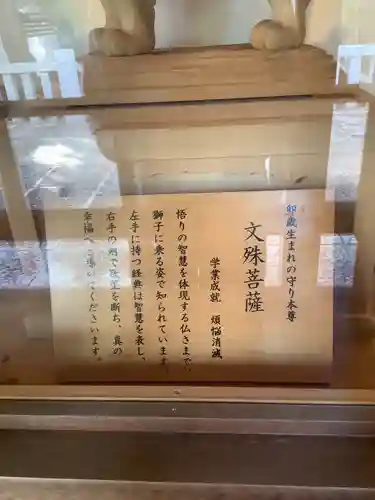 卯歳生まれの守り本尊
文殊菩薩
学業成就 煩悩消滅
悟りの智慧を体現する仏さまで、
獅子に乗る姿で知られています。
左手に持つ経典は智慧を表し、
右手の剣で煩悩を断ち、真の
幸福へと導いてくださいます。